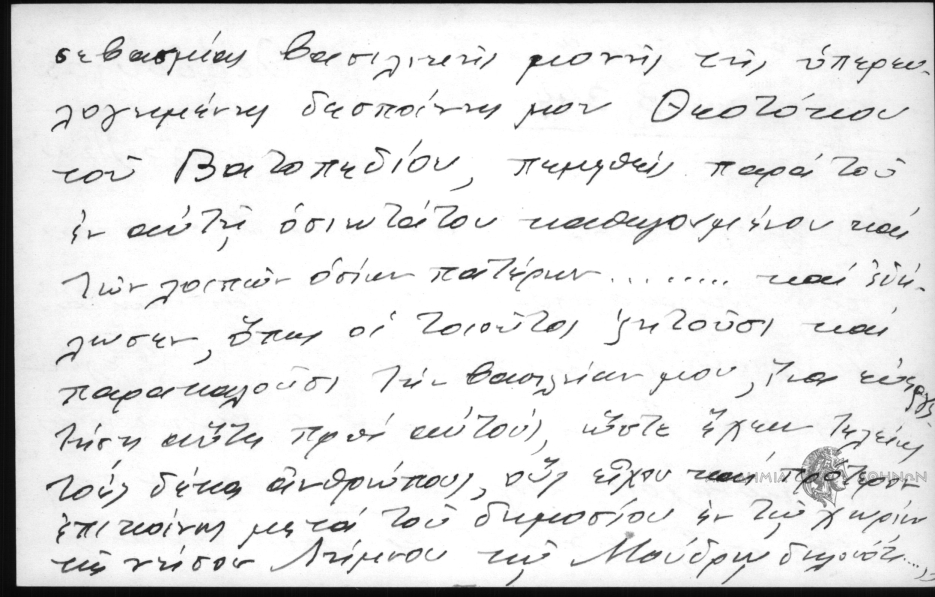 σεβασμίας βασιλικῆς μονῆς τῆς ὑπερευ-
λογημένης δεσποίνης μου Θεοτόκου
τοῦ Βατοπεδίου, πεμφθείς παρά τοῦ
ἐν αὐτῇ ὁσιωτάτου καθηγουμένου καί
τῶν λοιπῶν ὁσίων πατέρων ........ καί ἐδή-
λωσεν, ὅπως οἱ τοιοῦτοι ζητοῦσι καί
παρακαλοῦσι τήν βασιλείαν μου, ἵνα εὐεργε-
τήσῃ αὕτη πρός αὐτούς, ὥστε ἔχειν τελείως
τούς δέκα ἀνθρώπους, οὓς εἶχον καί πρότερον
ἐπικοίνως μετά τοῦ δημοσίου ἐν τῷ χωρίῳ
τῆς νήσου Λήμνου τῷ Μούδρῳ δηλονότι....